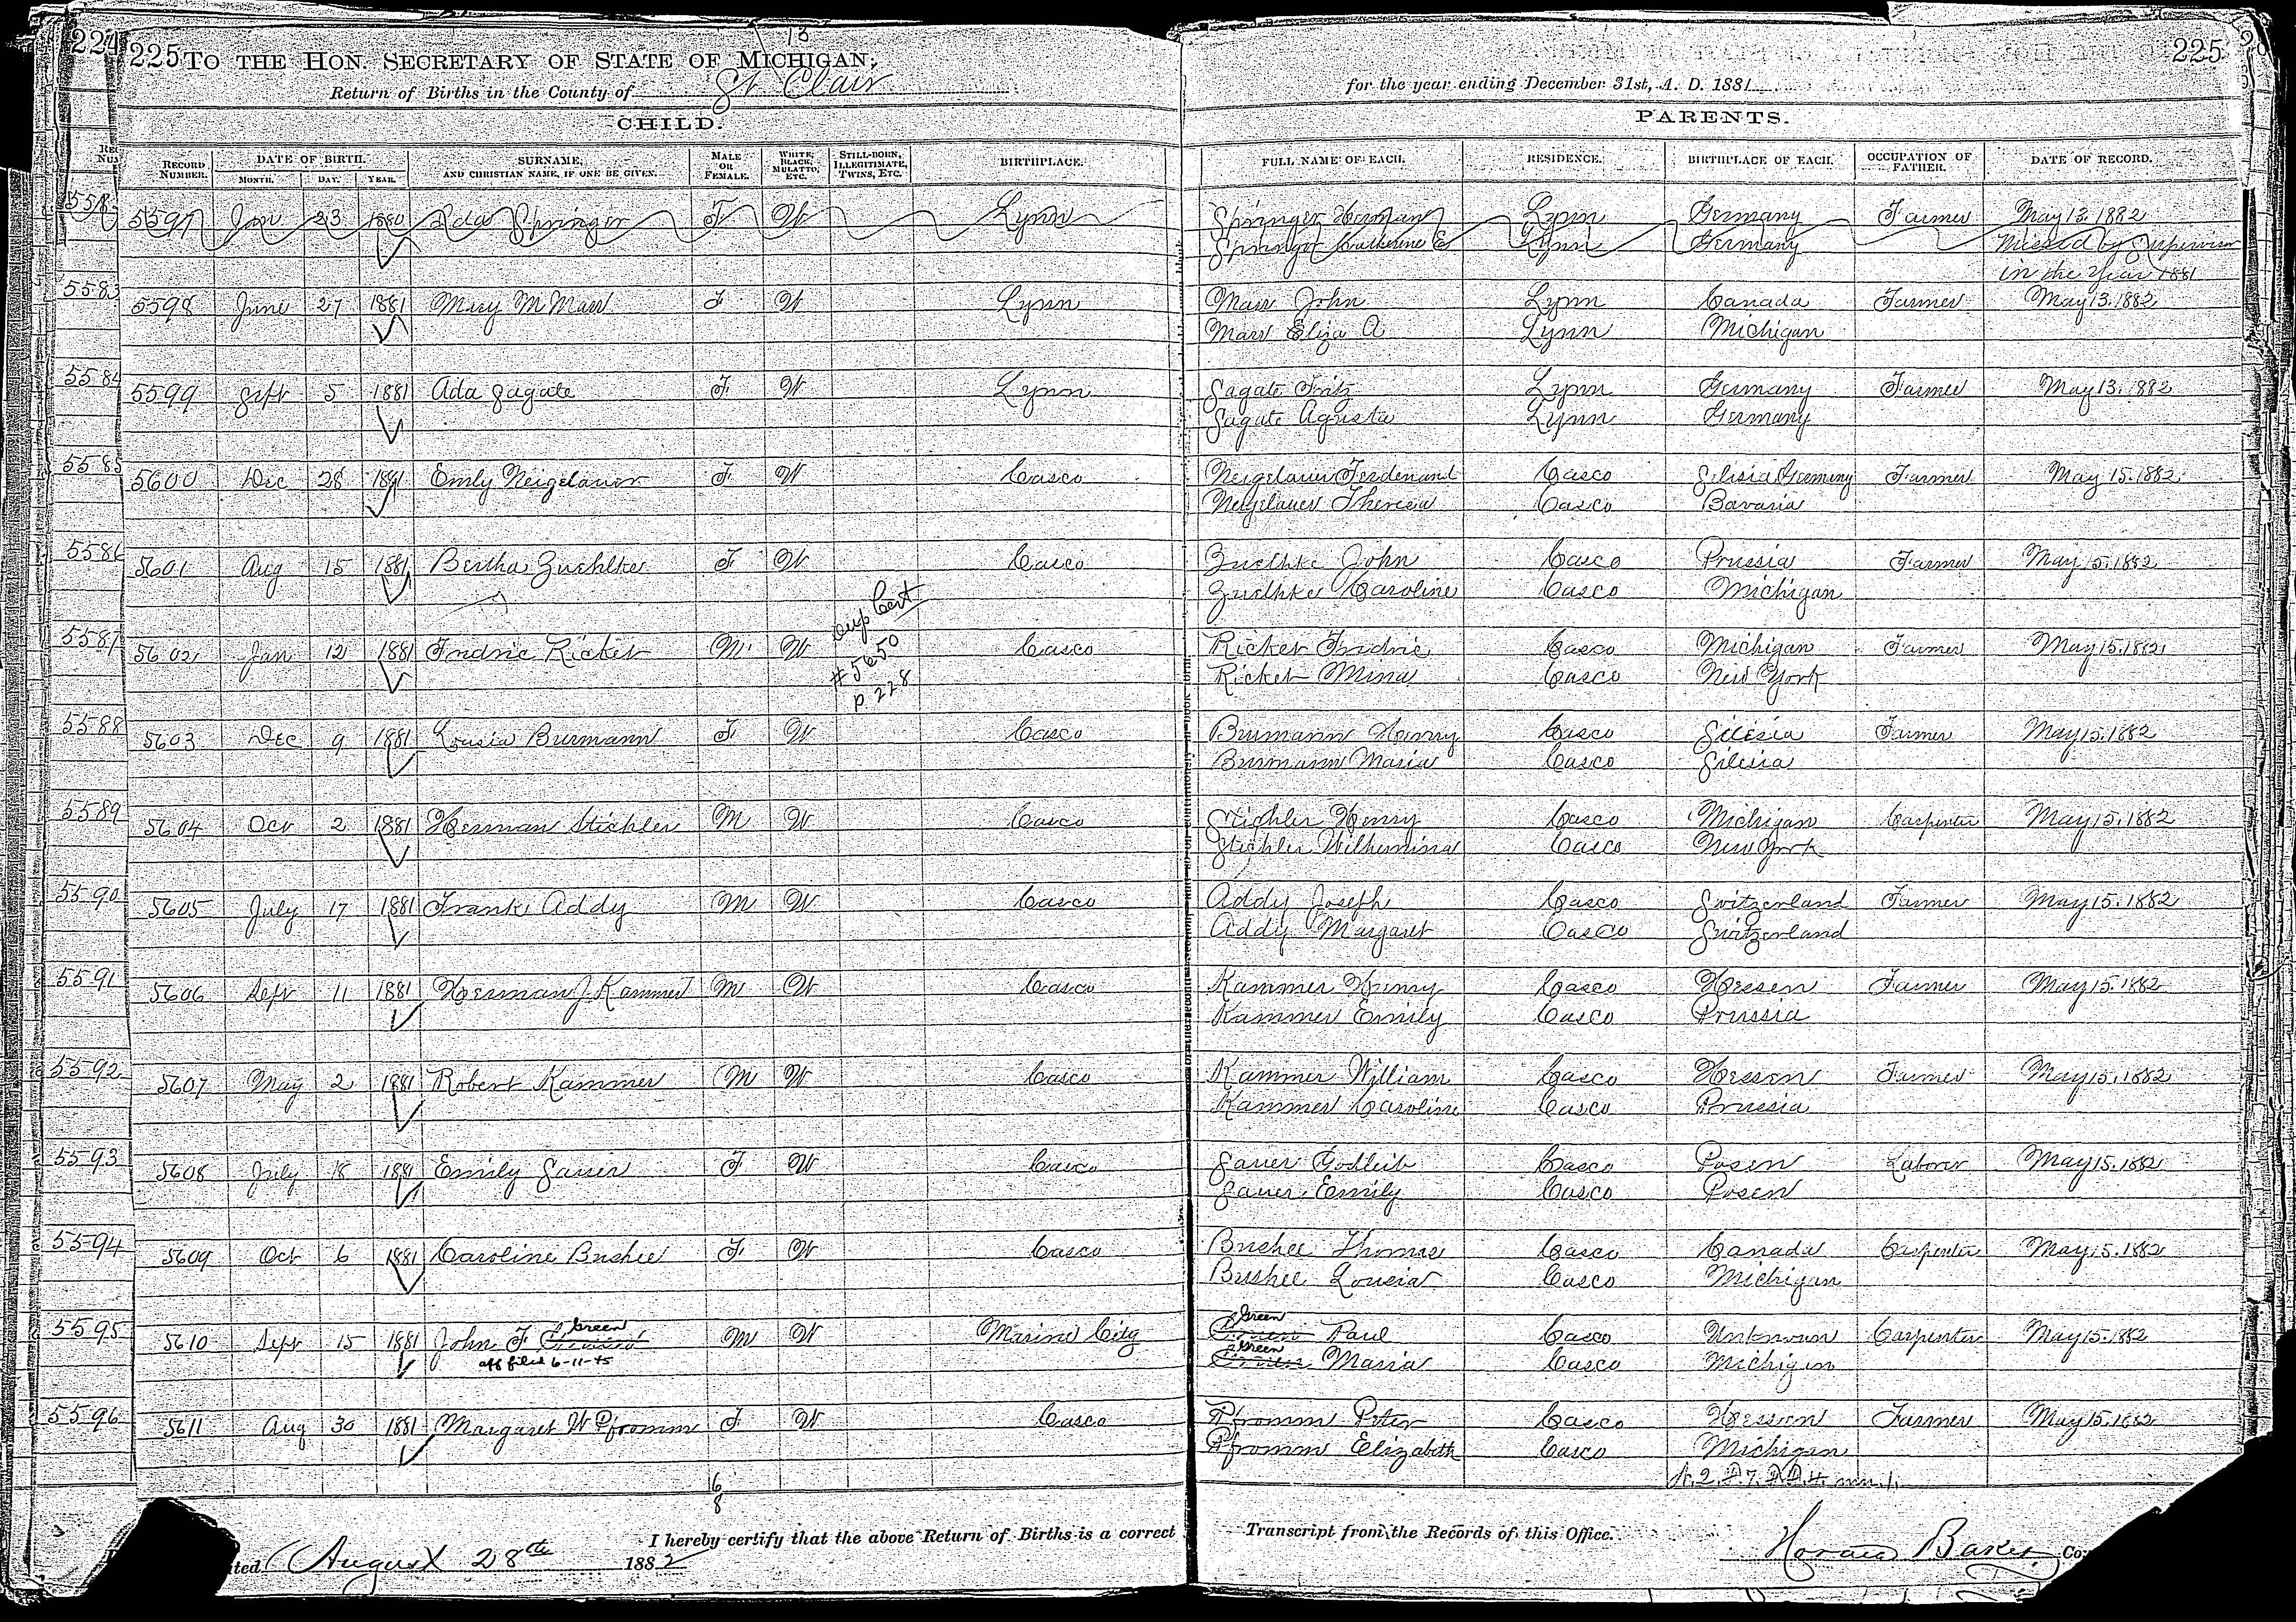 224
225 TO THE HON. SECRETARY OF STATE OF MICHIGAN,
13
225
Return of Births in the County of St Clair
for the year ending December 31st, A. D. 1881
CHILD.
PARENTS.
RECORD NUMBER. DATE OF BIRTH. MONTH. DAY. YEAR. SURNAME, AND CHRISTIAN NAME, IF ONE BE GIVEN. MALE OR FEMALE. WHITE, BLACK, MULATTO, ETC. STILL-BORN, ILLEGITIMATE, TWINS, ETC. BIRTHPLACE. FULL NAME OF EACH. RESIDENCE. BIRTHPLACE OF EACH. OCCUPATION OF FATHER. DATE OF RECORD.
5597 Jan 23 1880 Ada Springer F W Lynn Springer Herman Lynn Germany Farmer May 13. 1882
Springer Catherine E Lynn Germany Missed by Supervisor
in the year 1881
5583 5598 June 27 1881 Mary M Marr F W Lynn Marr John Lynn Canada Farmer May 13. 1882
Marr Eliza A Lynn Michigan
5584 5599 Sept 5 1881 Ada Sagate F W Lynn Sagate Fritz Lynn Germany Farmer May 13. 1882
Sagate Agusta Lynn Germany
5585 5600 Dec 28 1881 Emly Neigelauer F W Casco Neigelauer Ferdenand Casco Silisia Germany Farmer May 15. 1882
Neigelauer Theresa Casco Bavaria
5586 5601 Aug 15 1881 Bertha Zuehlke F W Casco Zuelhke John Casco Prussia Farmer May 15. 1882
Zuelhke Caroline Casco Michigan
Dup Cert
5587 5602 Jan 12 1881 Fredric Ricket M W #5650 Casco Ricket Fredric Casco Michigan Farmer May 15. 1882
p 228 Ricket Mina Casco New York
5588 5603 Dec 9 1881 Lousia Burmann F W Casco Burmann Henry Casco Silesia Farmer May 15. 1882
Burmann Maria Casco Silesia
5589 5604 Oct 2 1881 Herman Stichler M W Casco Stichler Henry Casco Michigan Carpenter May 15. 1882
Stichler Wilhemina Casco New York
5590 5605 July 17 1881 Frank Addy M W Casco Addy Joseph Casco Switzerland Farmer May 15. 1882
Addy Margaret Casco Switzerland
5591 5606 Sept 11 1881 Herman J Kammer M W Casco Kammer Henry Casco Hessen Farmer May 15. 1882
Kammer Emily Casco Prussia
5592 5607 May 2 1881 Robert Kammer M W Casco Kammer William Casco Hessen Farmer May 15. 1882
Kammer Caroline Casco Prussia
5593 5608 July 18 1881 Emily Sauer F W Casco Sauer Godleib Casco Posen Laborer May 15. 1882
Sauer Emily Casco Posen
5594 5609 Oct 6 1881 Caroline Bushee F W Casco Bushee Thomas Casco Canada Carpenter May 15. 1882
Bushee Lousia Casco Michigan
5595 5610 Sept 15 1881 John F Green M W Marine City Green Paul Casco Unknown Carpenter May 15. 1882
aff filed 6-11-45 Green Maria Casco Michigan
5596 5611 Aug 30 1881 Margaret W Pfromm F W Casco Pfromm Peter Casco Hessen Farmer May 15. 1882
Pfromm Elizabeth Casco Michigan
6
8
I hereby certify that the above Return of Births is a correct Transcript from the Records of this Office.
August 28th 1882
Horace Baker Co